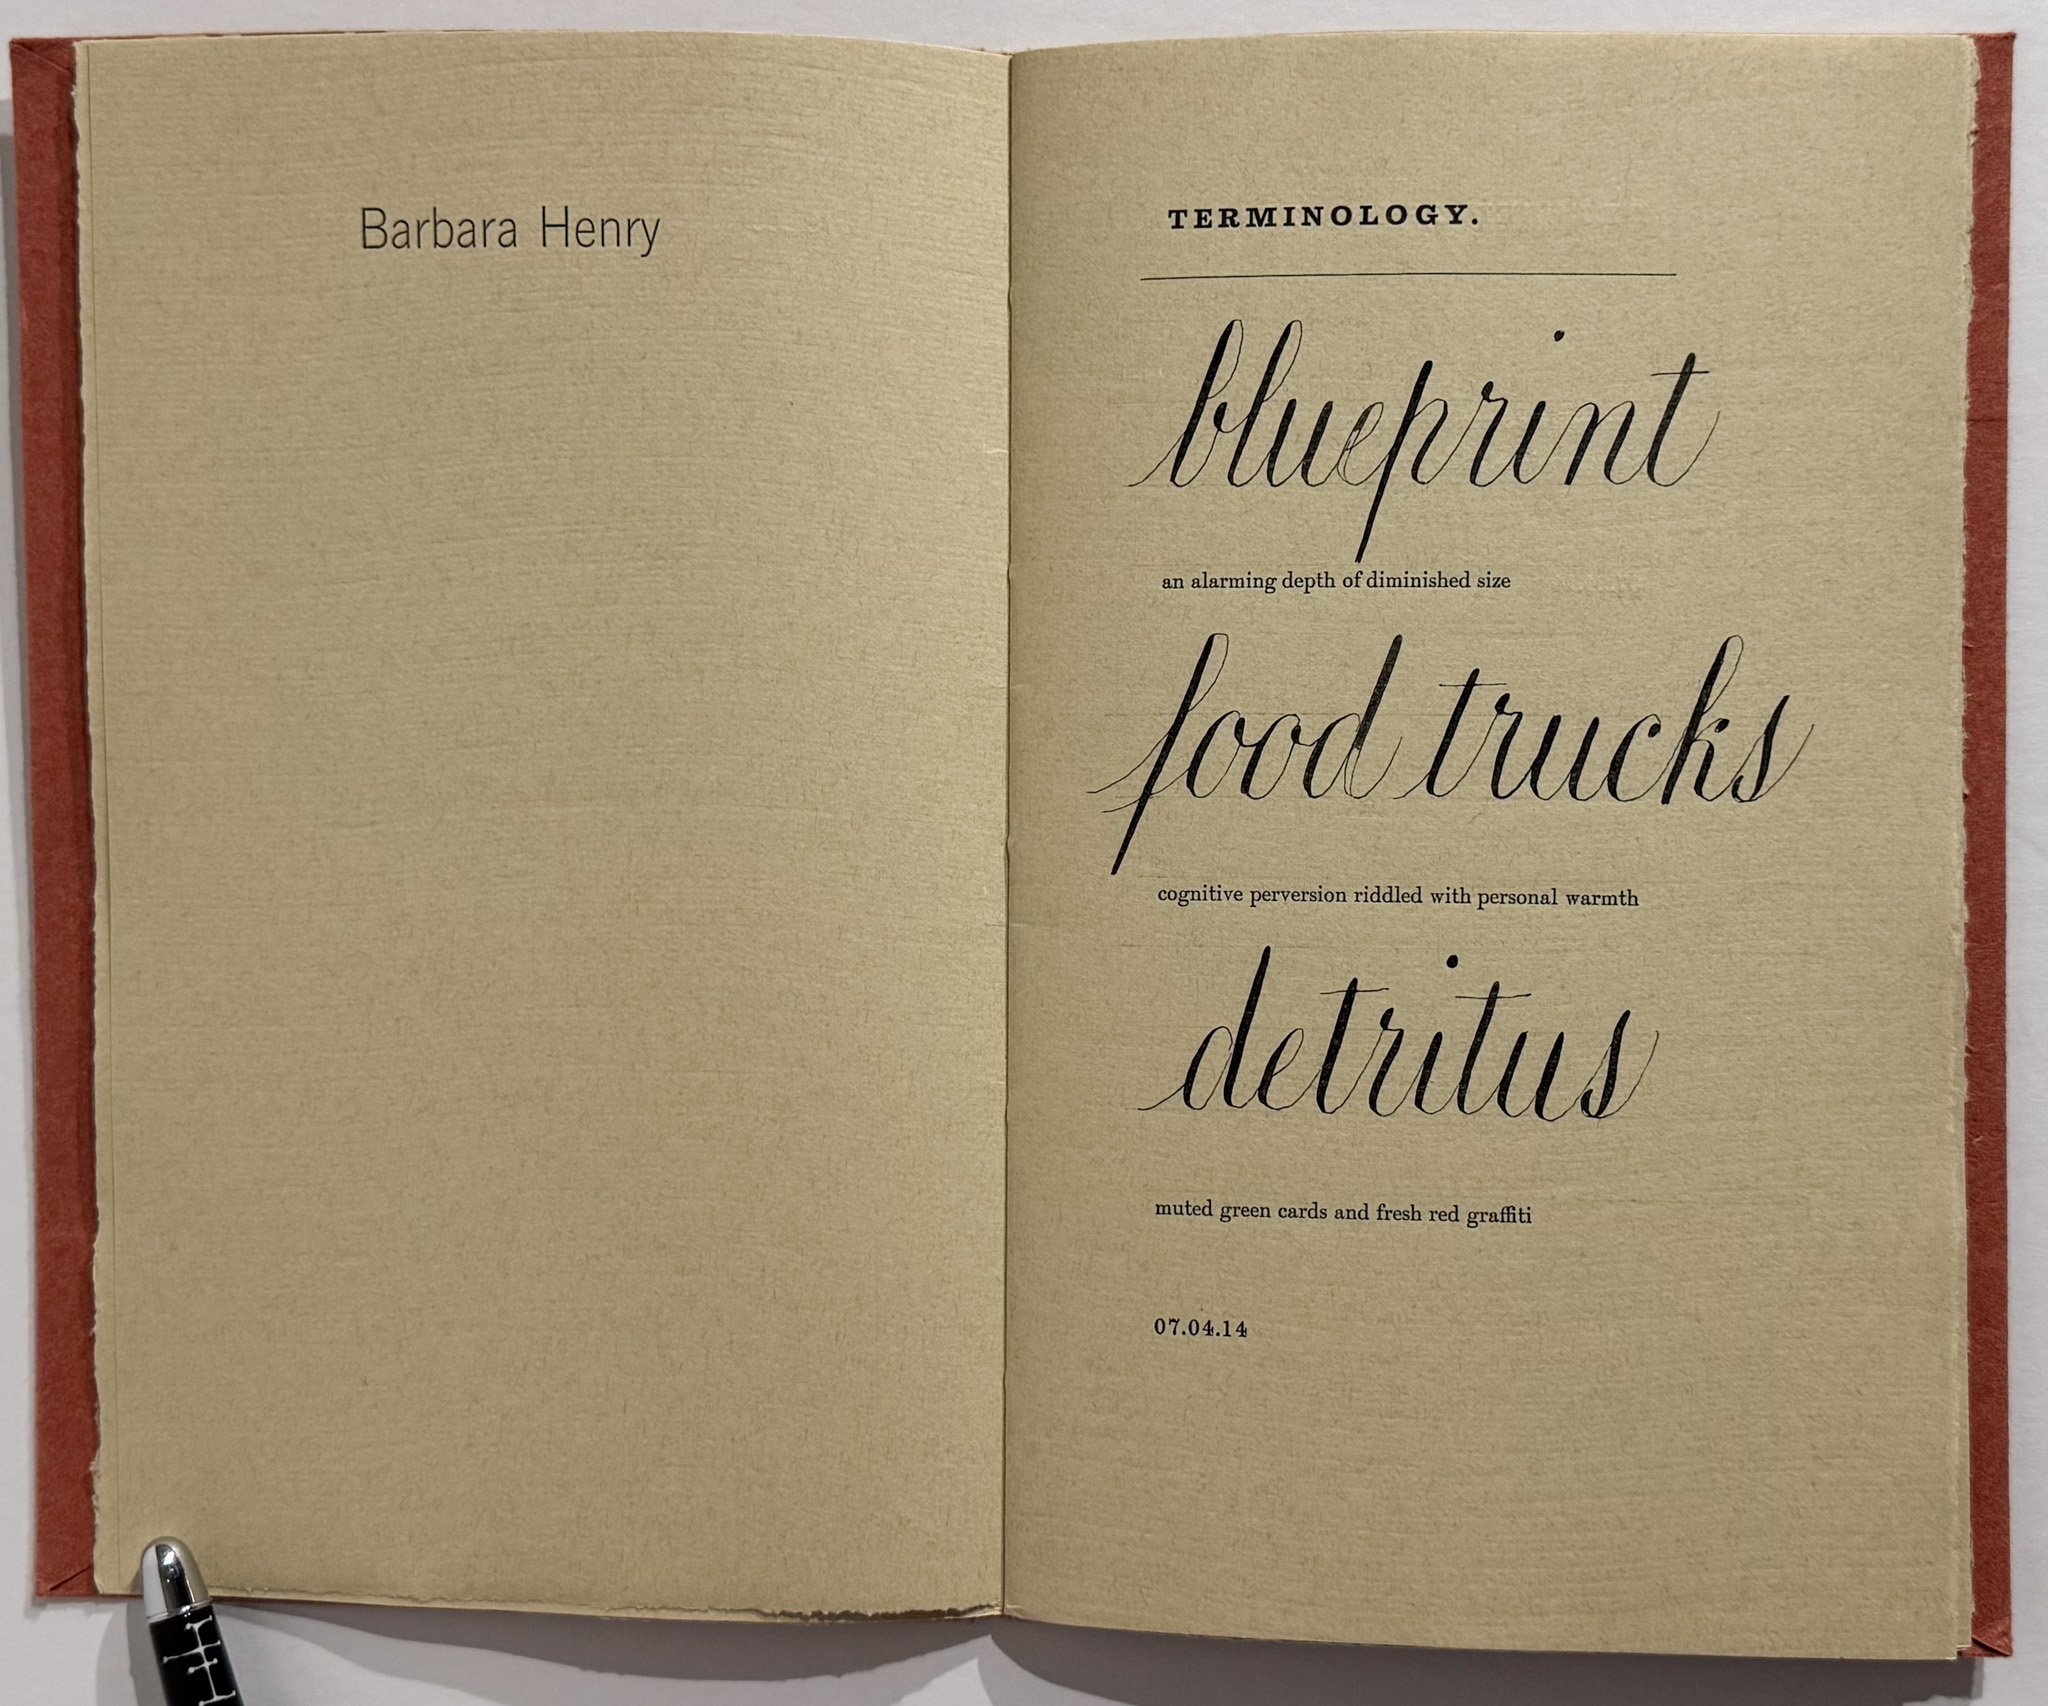 Barbara Henry
TERMINOLOGY.
blueprint
an alarming depth of diminished size
food trucks
cognitive perversion riddled with personal warmth
detritus
muted green cards and fresh red graffiti
07.04.14